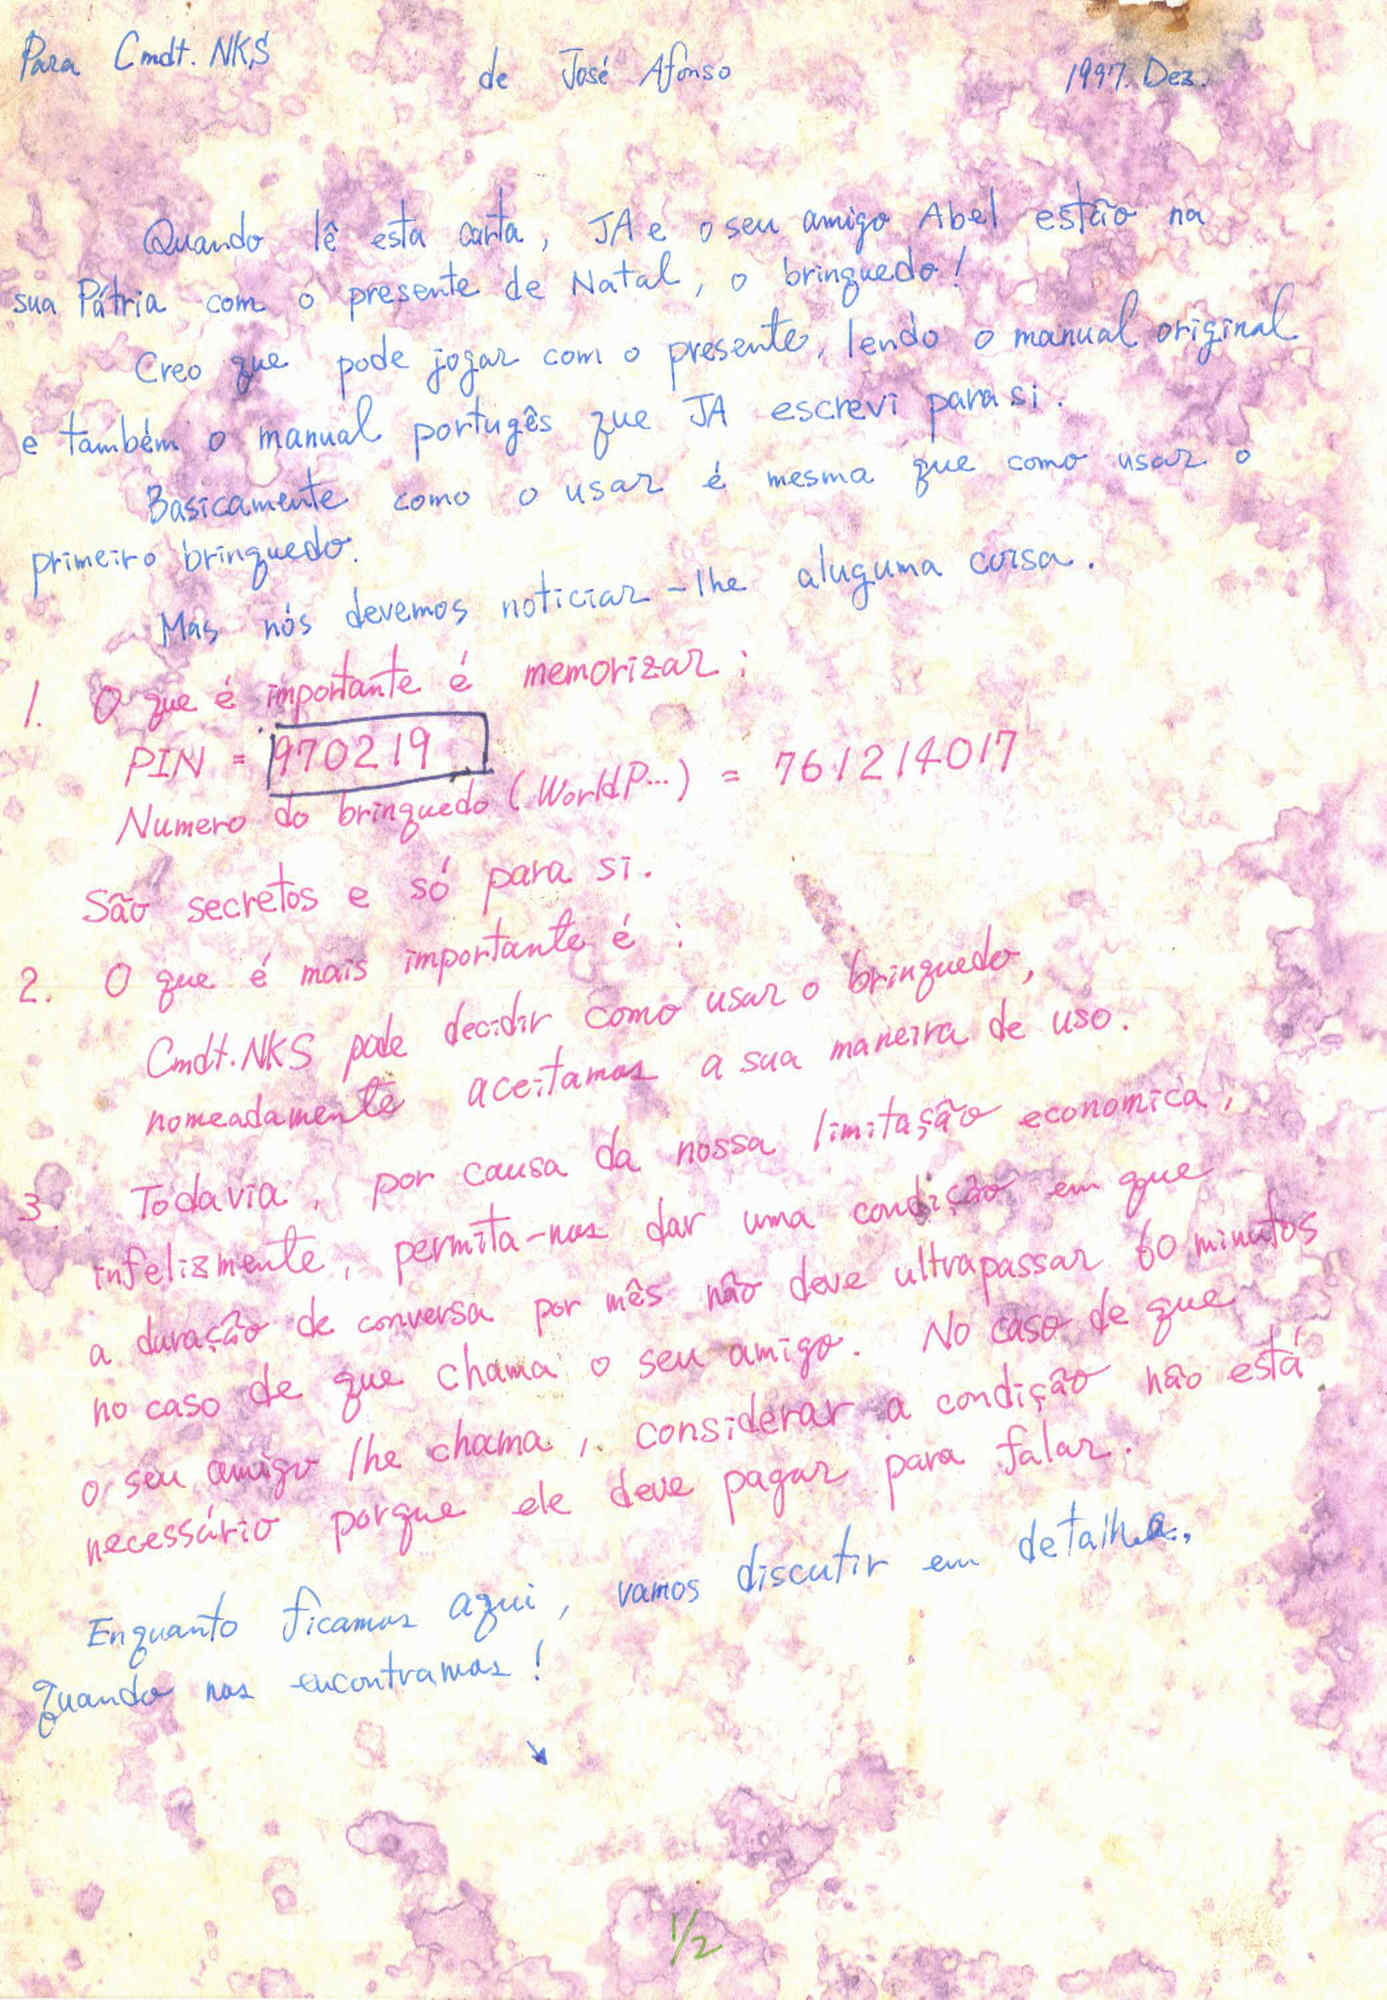 Para Cmdt. NKS
de José Afonso
1997. Dez.
Quando lê esta carta, JA e o seu amigo Abel estão na
sua Pátria com o presente de Natal, o brinquedo!
Creo que pode jogar com o presente, lendo o manual original
e também o manual portugês que JA escrevi para si.
Basicamente como o usar é mesma que como usar o
primeiro brinquedo.
Mas nós devemos noticiar-lhe aluguma coisa.
1. O que é importante é memorizar:
PIN = 970219
Numero do brinquedo (WorldP...) = 761214017
São secretos e só para si.
2. O que é mais importante é :
Cmdt. NKS pode decidir como usar o brinquedo,
nomeadamente aceitamos a sua maneira de uso.
3. Todavia, por causa da nossa limitasão economica,
infelizmente, permita-nos dar uma condição em que
a duração de conversa por mês não deve ultrapassar 60 minutos
no caso de que chama o seu amigo. No caso de que
o seu amigo lhe chama, considerar a condição não está
necessário porque ele deve pagar para falar.
Enquanto ficamos aqui, vamos discutir em detalhe,
quando nos encontramos!
1/2